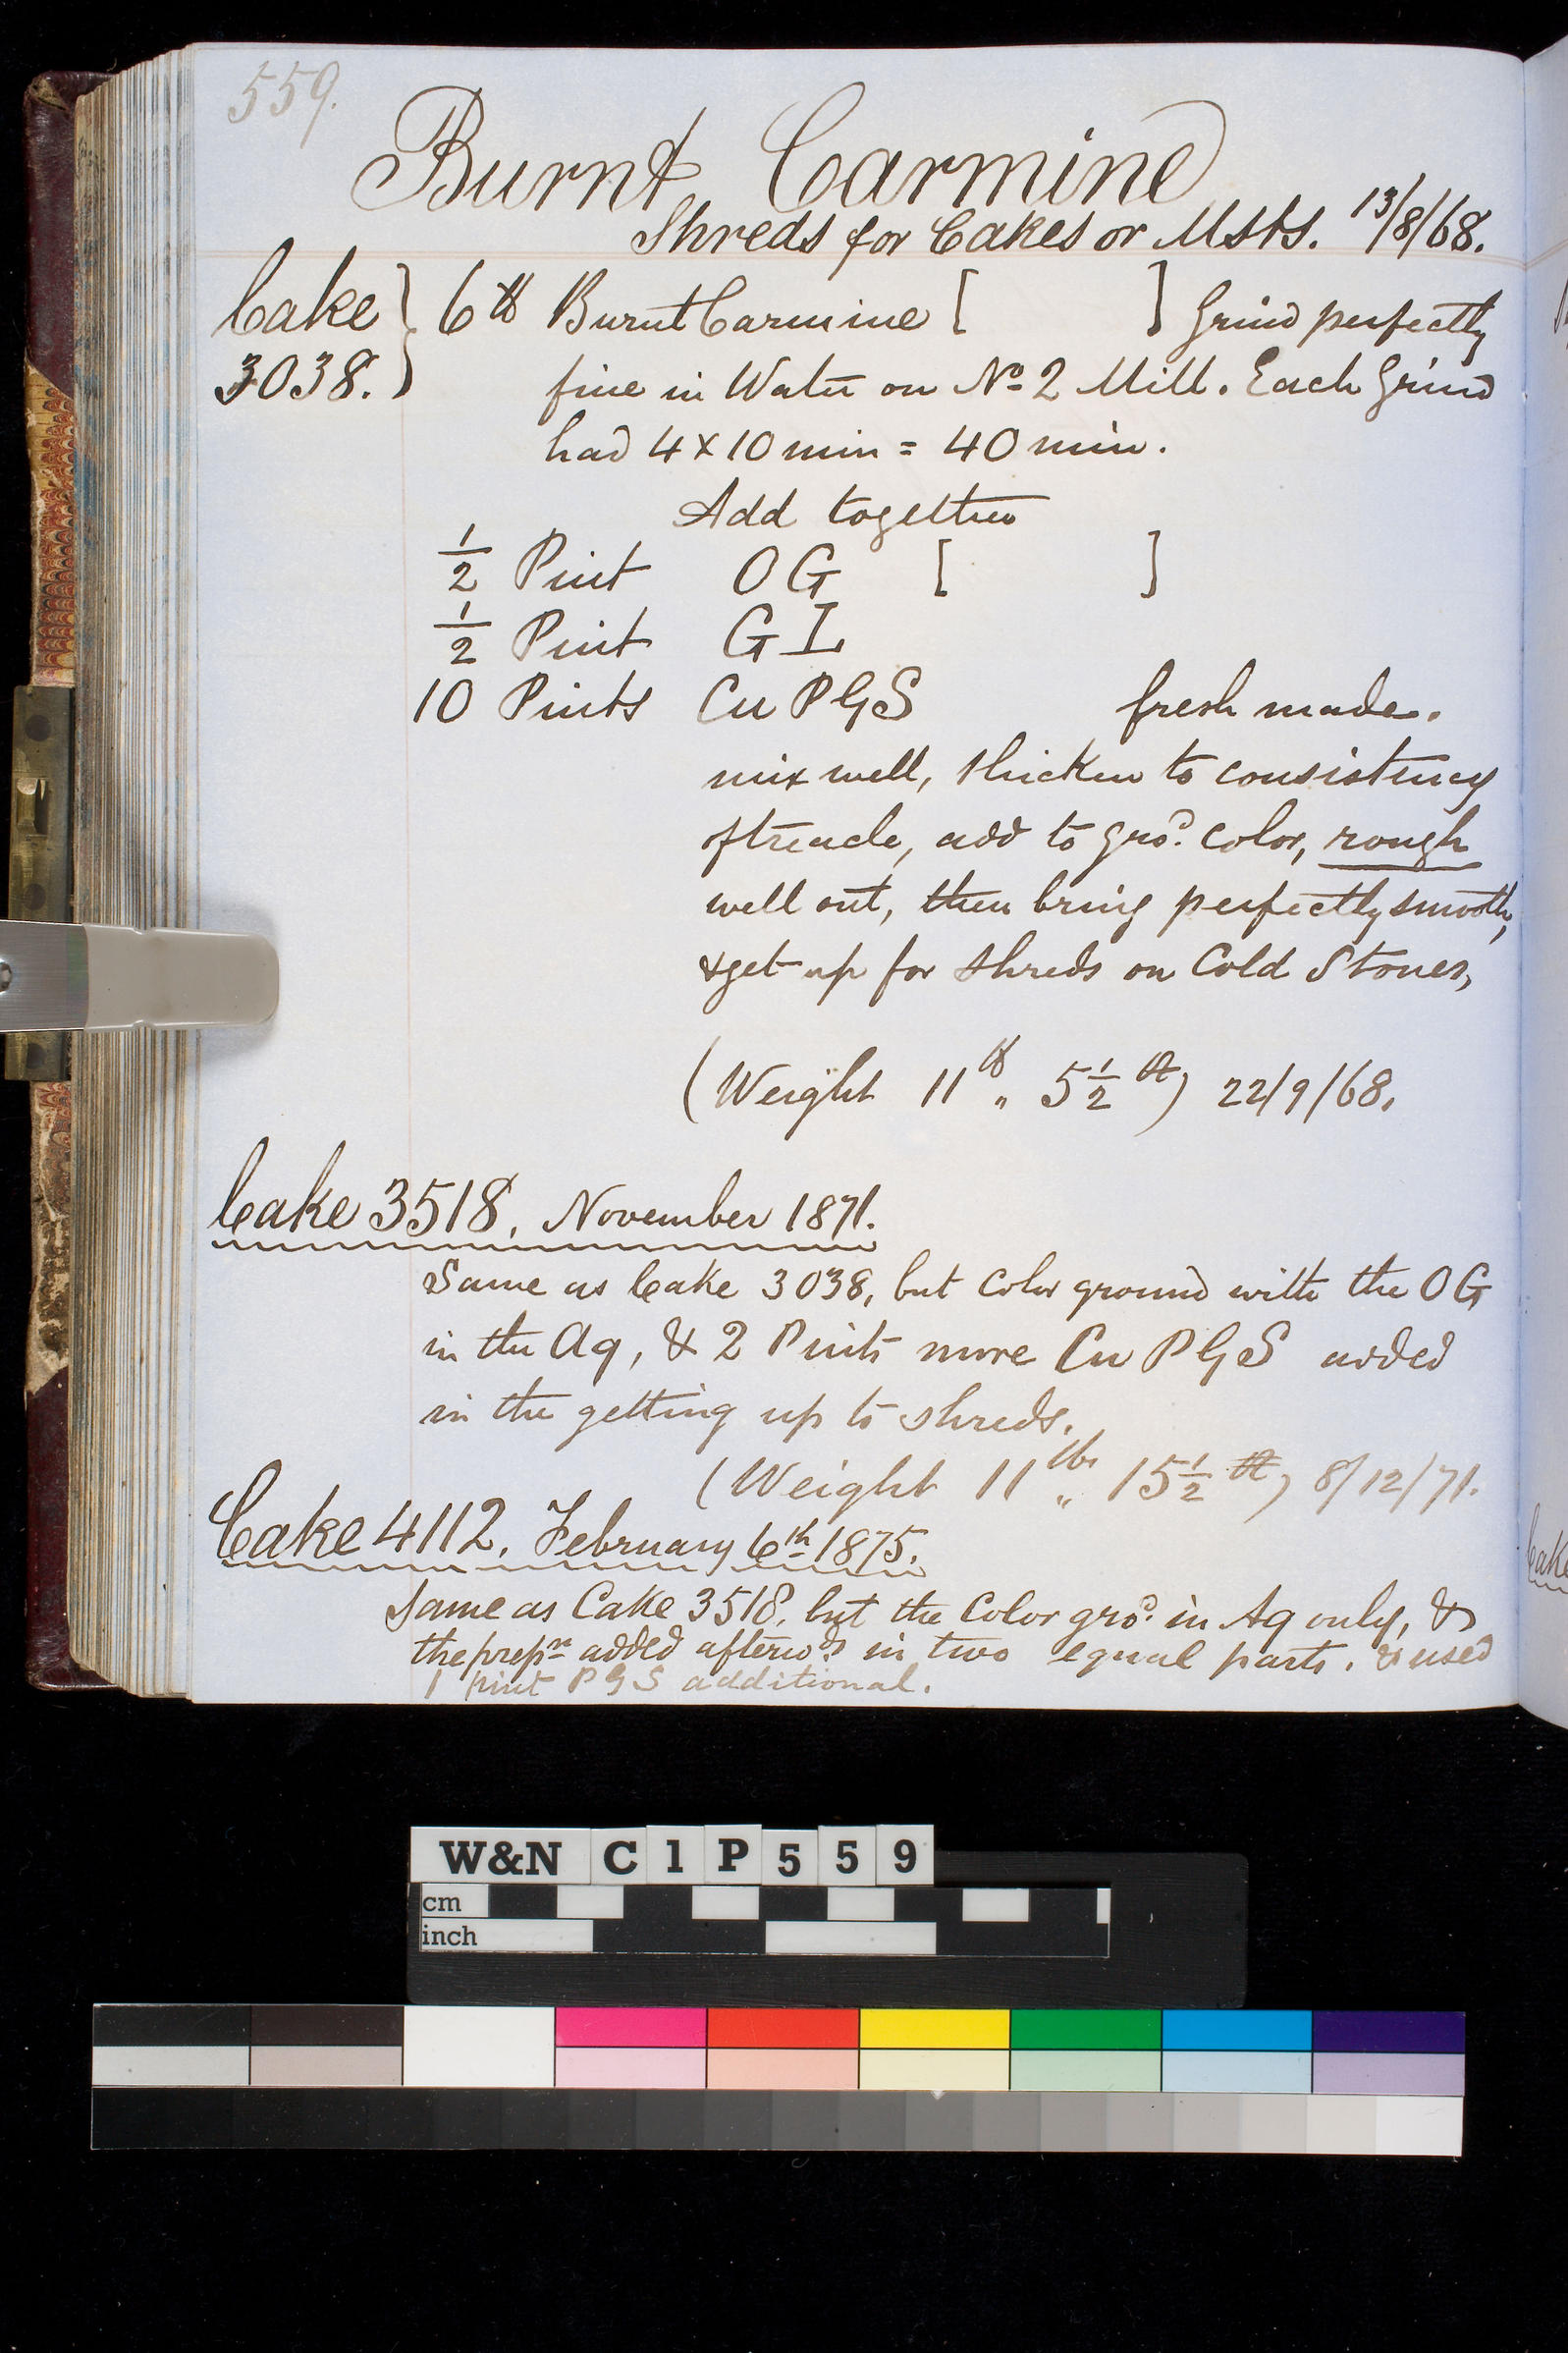 559.
Burnt Carmine
Shreds for Cakes or Msts. 13/8/68.
Cake } 6 lb Burnt Carmine [ ] Grind perfectly
3038. fine in Water on No 2 Mill. Each Grind
had 4 x 10 min = 40 min.
Add together
1/2 Pint OG [ ]
1/2 Pint GI
10 Pints Cu PGS fresh made.
mix well, thicken to consistency
of treacle, add to grod. color, rough
well out, then bring perfectly smooth,
& get up for shreds on Cold Stones,
(Weight 11 lb „ 5 1/2) 22/9/68.
Cake 3518, November 1871.
Same as Cake 3038, but color ground with the OG
in the Aq, & 2 Pints more Cu PGS added
in the getting up to shreds.
(Weight 11 lbs „ 15 1/2) 8/12/71.
Cake 4112, February 6th 1875.
Same as Cake 3518, but the Color grod. in Aq only, &
the prepn added afterwds in two equal parts, & used
1 pint PGS additional.
Cake
W&N C1P559
cm
inch